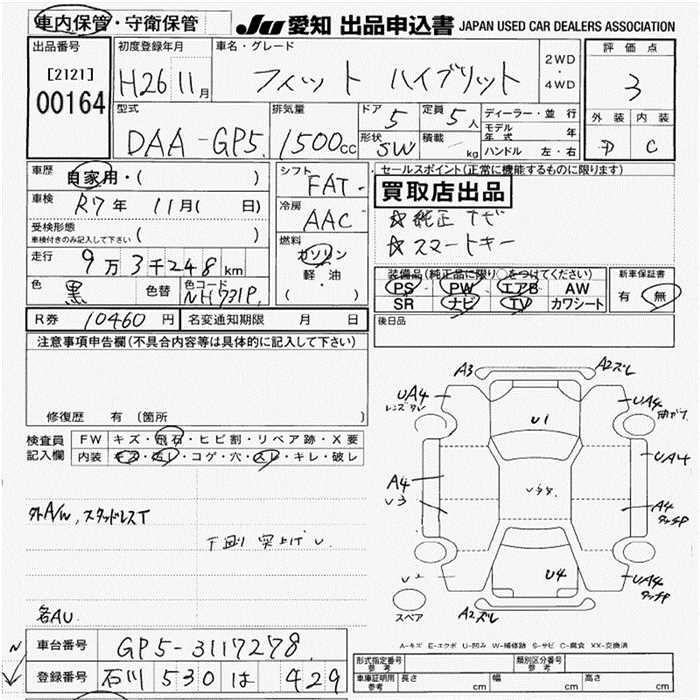 車内保管・守衛保管 JU 愛知 出品申込書 JAPAN USED CAR DEALERS ASSOCIATION
出品番号 初度登録年月 車名・グレード 評価点
[2121] H26 11月 フィット ハイブリット 2WD・4WD 3
00164
型式 排気量 ドア 定員 外装 内装
DAA-GP5 1500cc 5 5人 ディーラー・並行
形状 SW 積載 kg モデル年式 年 D C
ハンドル 左・右
車歴 自家用・( ) シフト FAT セールスポイント(正常に機能するものに限ります)
車検 R7年 11月( 日) 冷房 AAC 買取店出品
受検形態 ( ) ☆純正ナビ
車検付きのみ記入して下さい ☆スマートキー
走行 9万3千248km 燃料 ガソリン
軽・油
( )
色 黒 色替 色コード NH731P
装備品(純正品に限り○をつけてください) 新車保証書
PS PW エアB AW 有 無
SR ナビ TV カワシート
R券 10460円 名変通知期限 月 日 後日品
注意事項申告欄(不具合内容等は具体的に記入して下さい)
修復歴 有 (箇所
検査員 FW キズ・飛石・ヒビ割・リペア跡・X要
記入欄 内装 キズ・汚レ・コゲ・穴・スレ・キレ・破レ
外A/W,スタッドレスT
下廻 突上げU.
各AU.
A3 A2ズレ
UA4 UA4
U1
A4 UA4
A4
タッチP
U4 UA4
タッチP
スペア A2ズレ
A-キズ E-エクボ U-凹み W-補修跡 S-サビ C-腐食 XX-交換済
車台番号 GP5-3117278
登録番号 石川 530 は 429
形式指定番号 参考 類別区分番号 参考
車庫証明用 参考 長さ cm 幅 cm 高さ cm